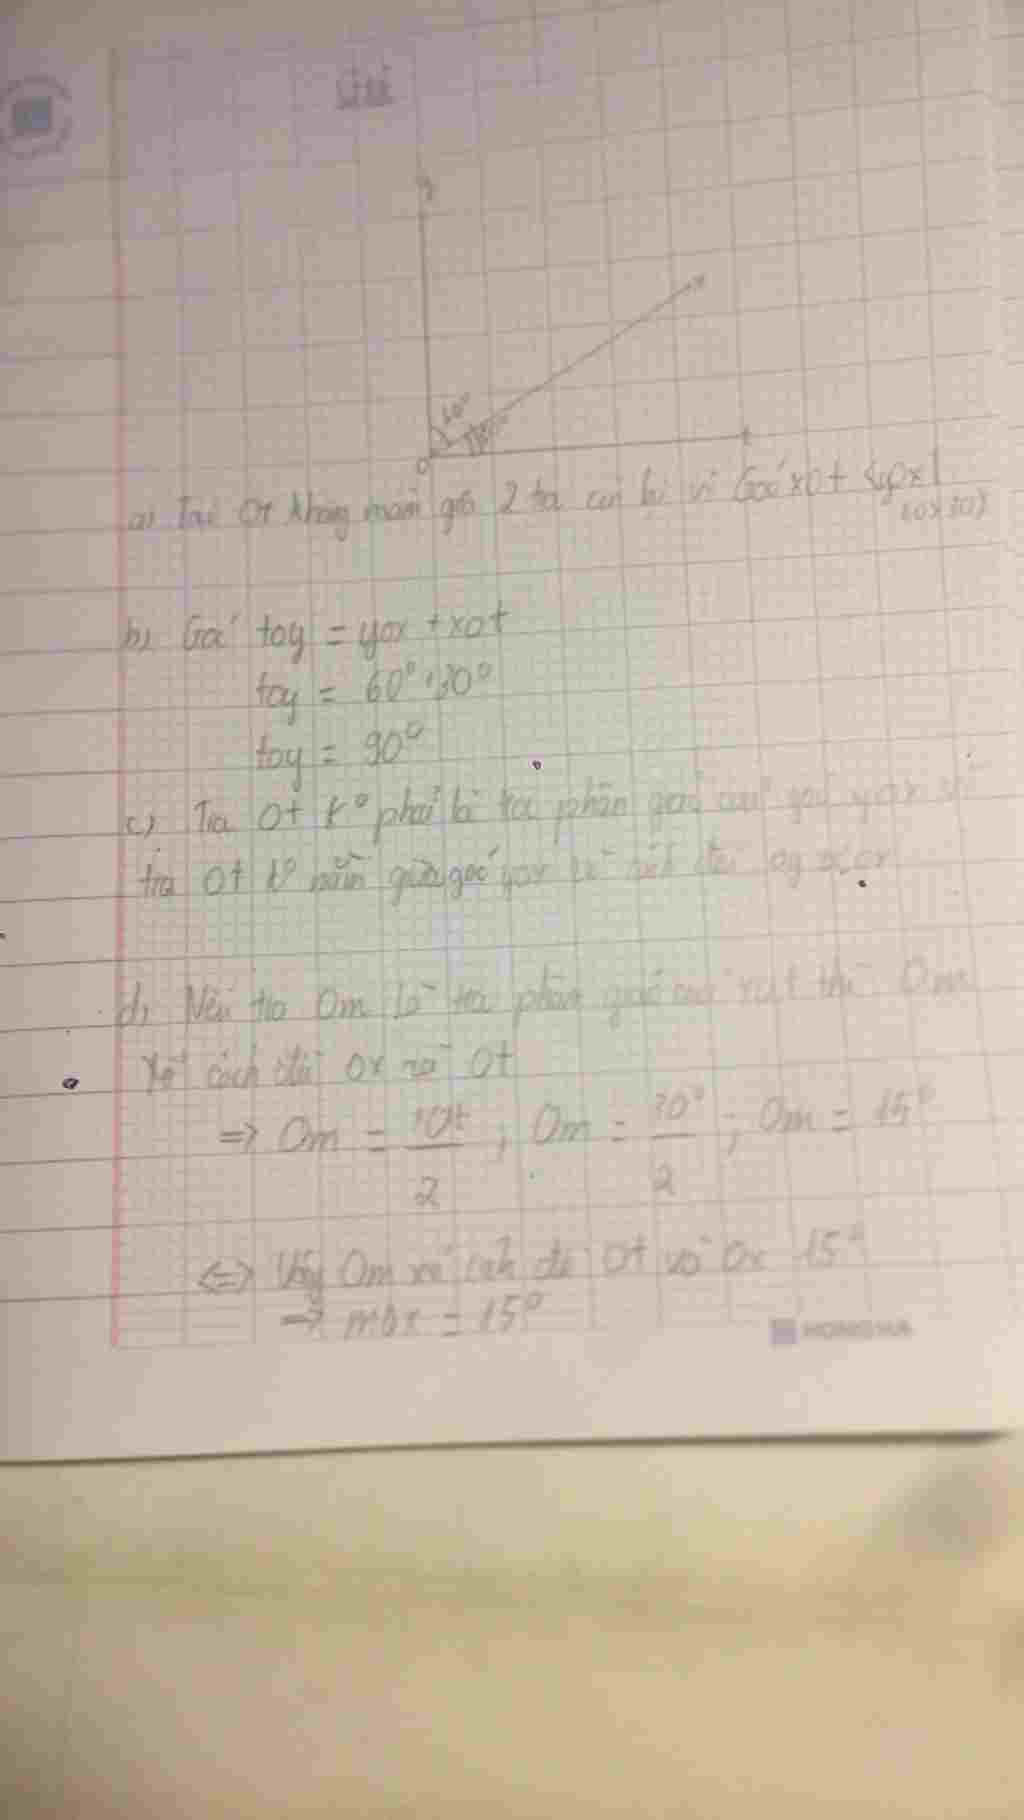 Giải
y
60°
O t
a) Tại Ot không nằm giữa 2 tia còn lại vì Góc xOt < yOx
b) Góc toy = yox + xot
toy = 60° + 30°
toy = 90°
c) Tia Ot k° phải là tia phân giác của góc yox vì
tia Ot k° nằm giữa góc yox và cách đều oy ox
d) Nếu tia Om là tia phân giác của xot thì Om
sẽ cách đều Ox và Ot
=> Om = xOt / 2 ; Om = 30° / 2 ; Om = 15°
<=> Vậy Om sẽ cách đều Ot và Ox 15°
=> mox = 15°
HONG HA